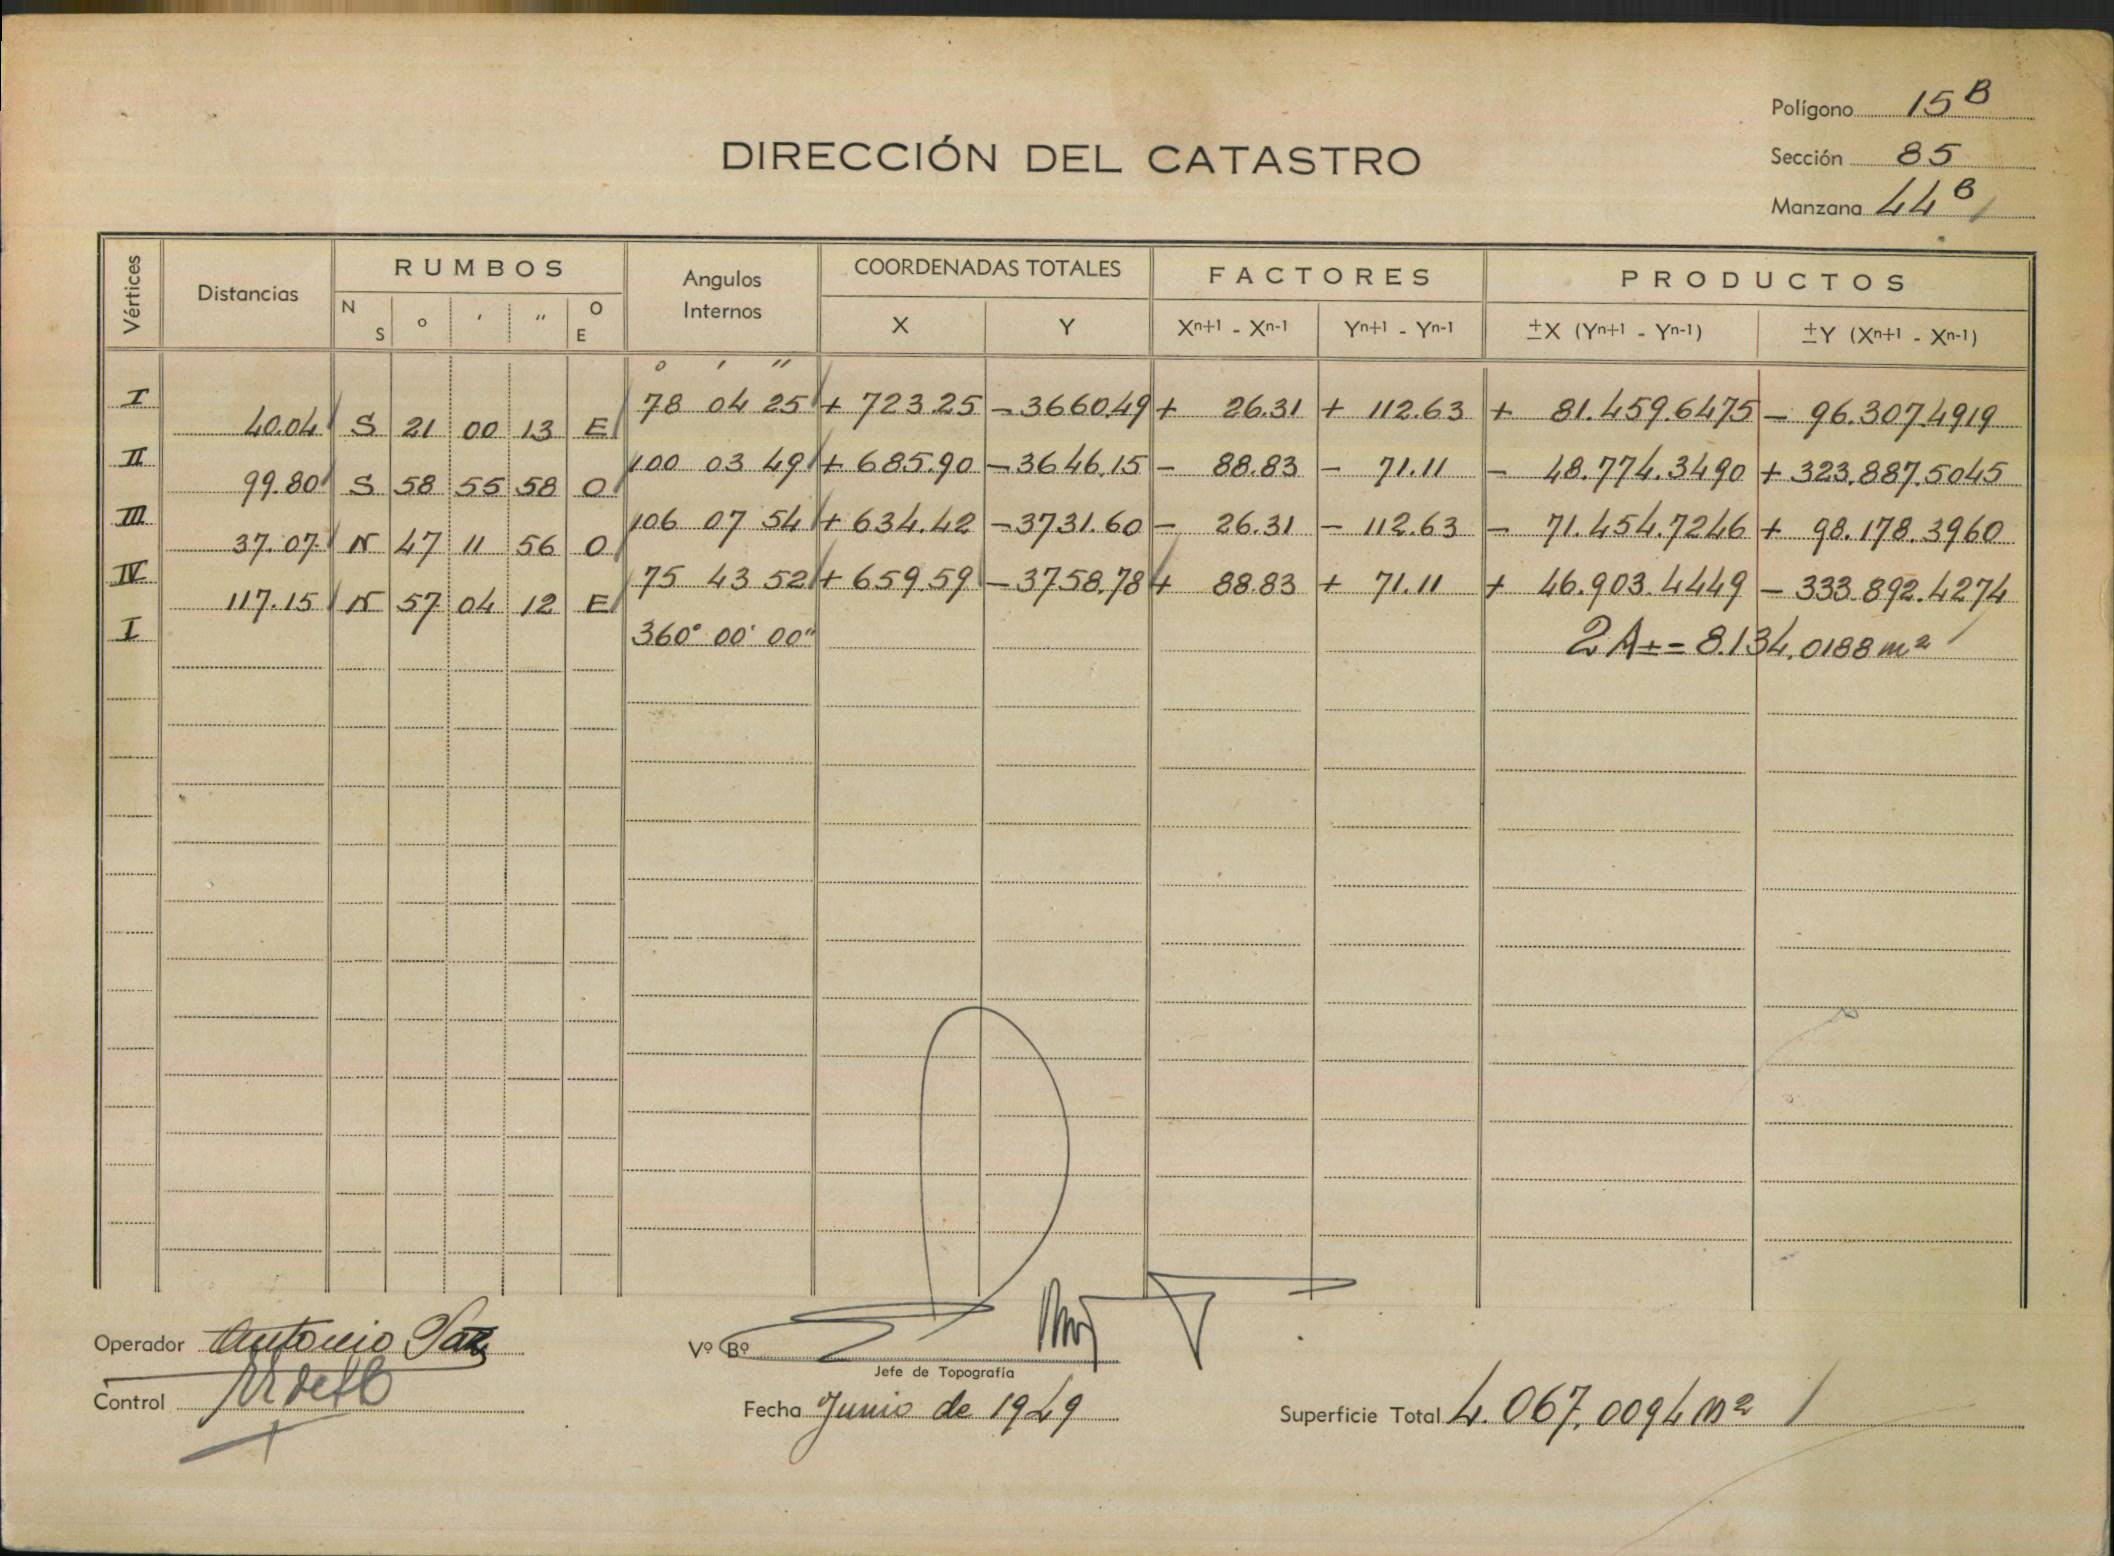 Polígono 15 B
Sección 85
Manzana 44 B
DIRECCIÓN DEL CATASTRO
Vértices Distancias RUMBOS Angulos Internos COORDENADAS TOTALES FACTORES PRODUCTOS
N S o ' '' O E X Y Xn+1 - Xn-1 Yn+1 - Yn-1 ±X (Yn+1 - Yn-1) ±Y (Xn+1 - Xn-1)
o ' ''
I 78 04 25 + 723.25 - 3660.49 + 26.31 + 112.63 + 81.459.6475 - 96.307.4919
40.04 S 21 00 13 E
II 100 03 49 + 685.90 - 3646.15 - 88.83 - 71.11 - 48.774.3490 + 323.887.5045
99.80 S 58 55 58 O
III 106 07 54 + 634.42 - 3731.60 - 26.31 - 112.63 - 71.454.7246 + 98.178.3960
37.07 N 47 11 56 O
IV 75 43 52 + 659.59 - 3758.78 + 88.83 + 71.11 + 46.903.4449 - 333.892.4274
117.15 N 57 04 12 E
I 360° 00' 00" 2A ± = 8.134,0188 m2
Operador Antonio
Vº Bº
Jefe de Topografía
Control
Fecha Junio de 1949
Superficie Total 4.067,0094 m2